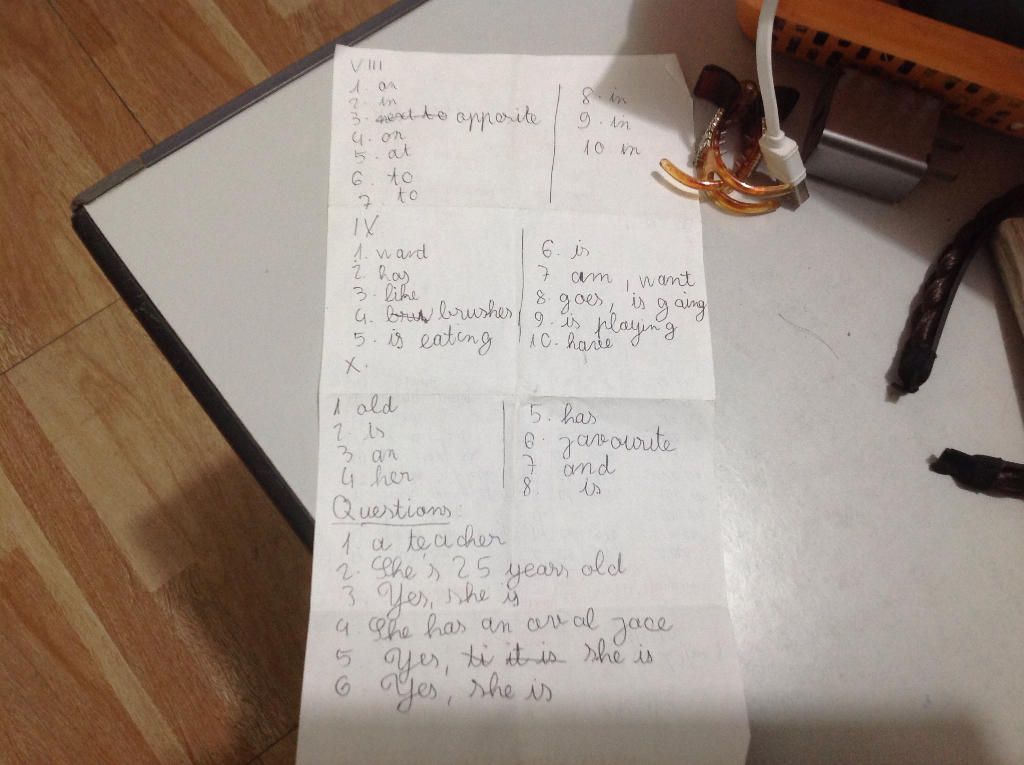 VIII
1. on
2. in
3. next to opposite
4. on
5. at
6. to
7. to
8. in
9. in
10 in
IX
1. ward
2. has
3. like
4. brus brushes
5. is eating
6. is
7 am, want
8. goes, is going
9. is playing
10. have
X.
1 old
2. is
3. an
4. her
5. has
6. favourite
7 and
8. is
Questions:
1 a teacher
2. She's 25 years old
3. Yes, she is
4 She has an oval face
5 Yes, ti it is she is
6 Yes, she is